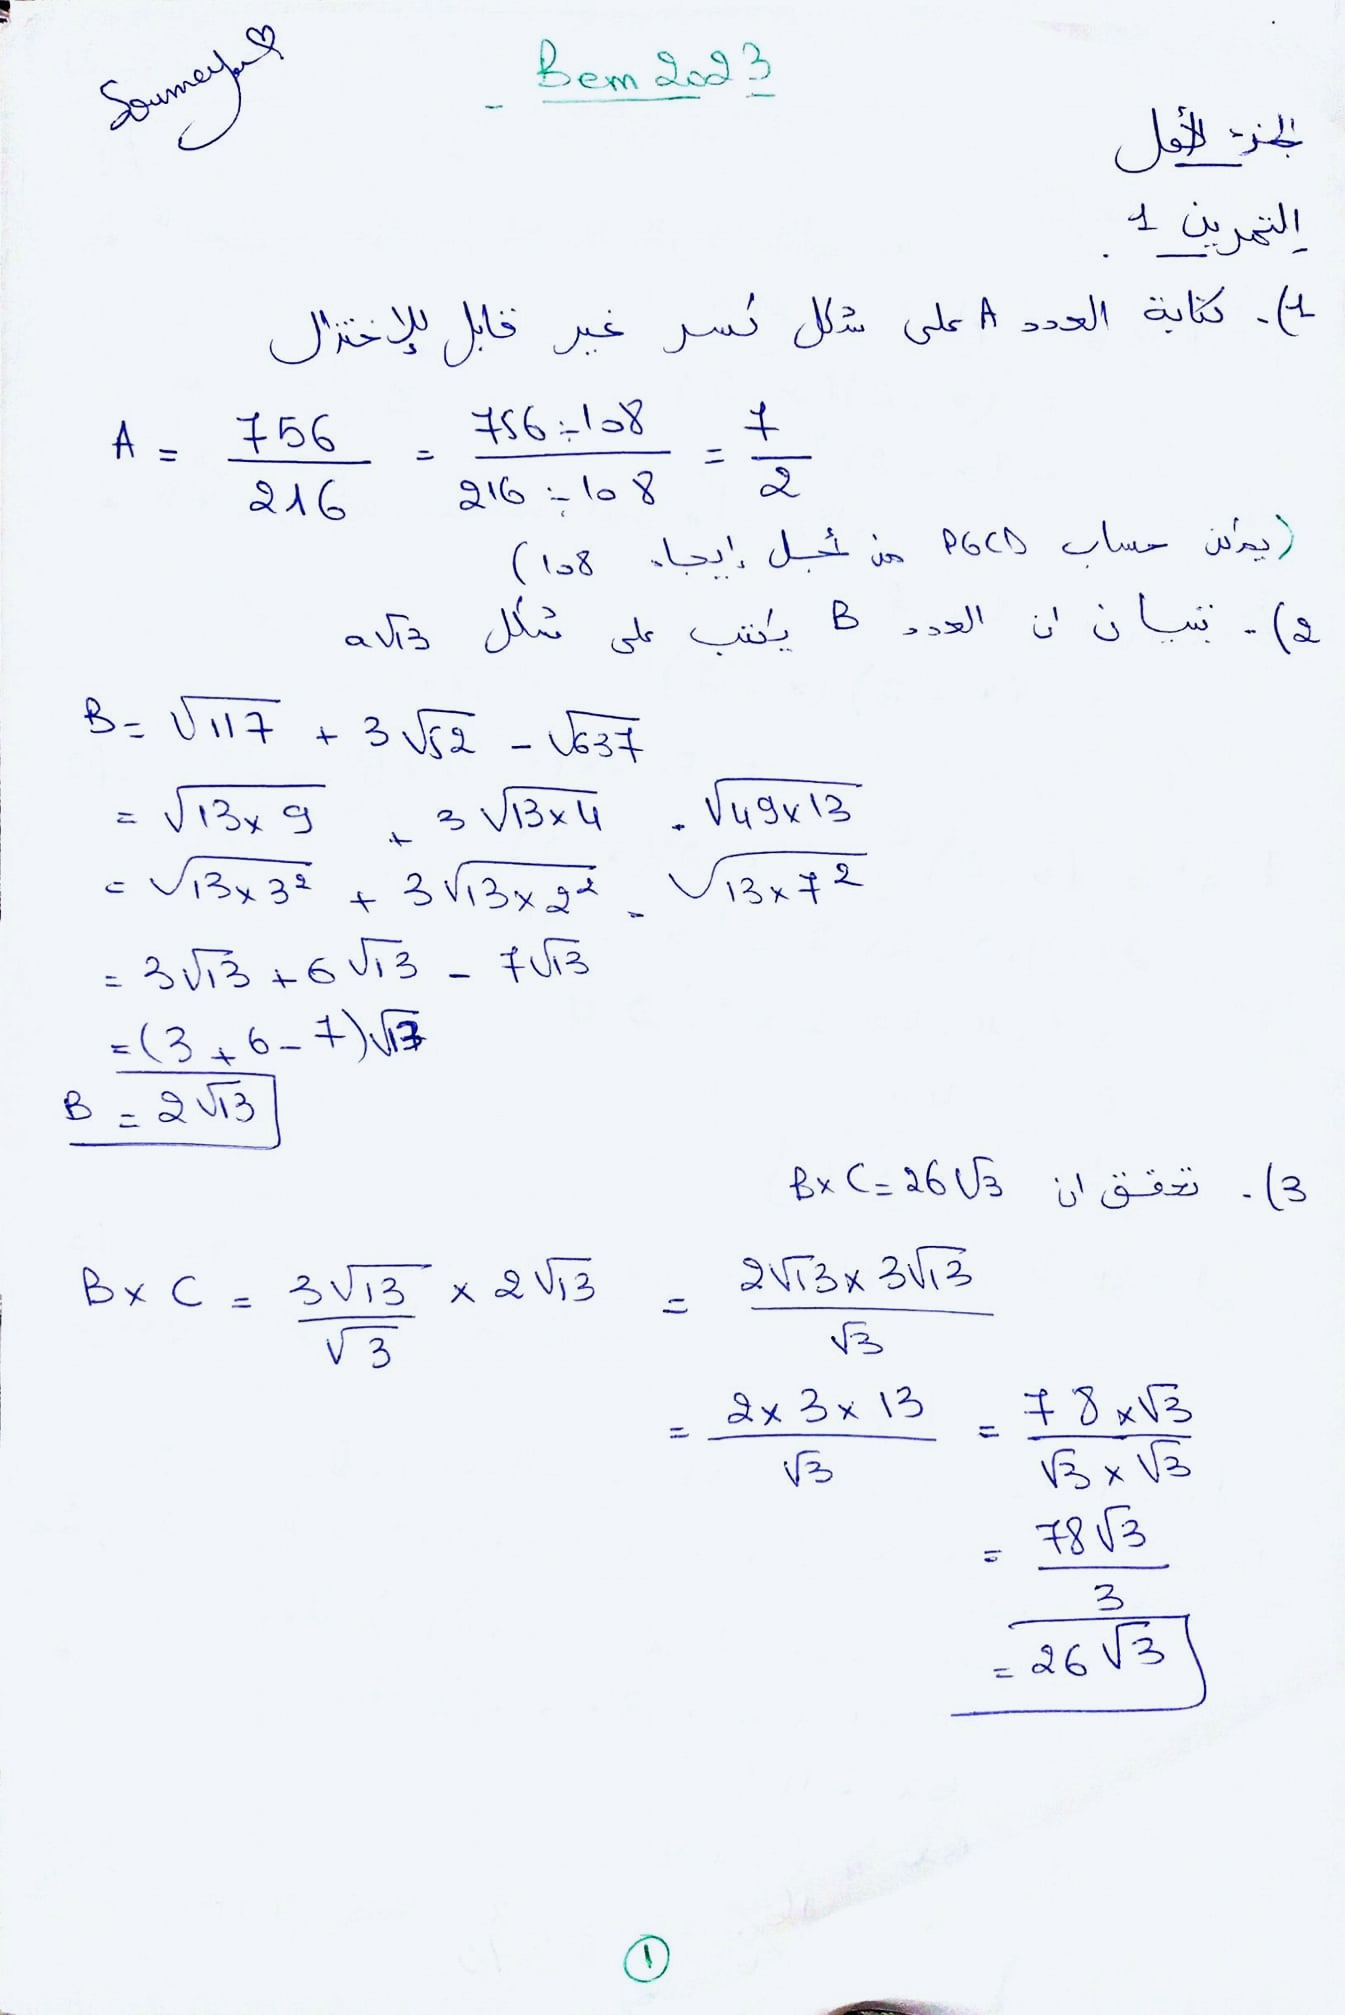 Soumeya
Bem 2023
الجزء الأول
التمرين 1
1). كتابة العدد A على شكل كسر غير قابل للإختزال
A = 756/216 = 756÷108/216÷108 = 7/2
(يمكن حساب PGCD من أجل إيجاد 108)
2). تبيان ان العدد B يكتب على شكل a√13
B = √117 + 3√52 - √637
= √13×9 + 3√13×4 - √49×13
= √13×3² + 3√13×2² - √13×7²
= 3√13 + 6√13 - 7√13
= (3+6-7)√13
B = 2√13
3). تحقق ان B×C=26√3
B×C = 3√13/√3 × 2√13 = 2√13×3√13/√3
= 2×3×13/√3 = 78×√3/√3×√3
= 78√3/3
= 26√3
1